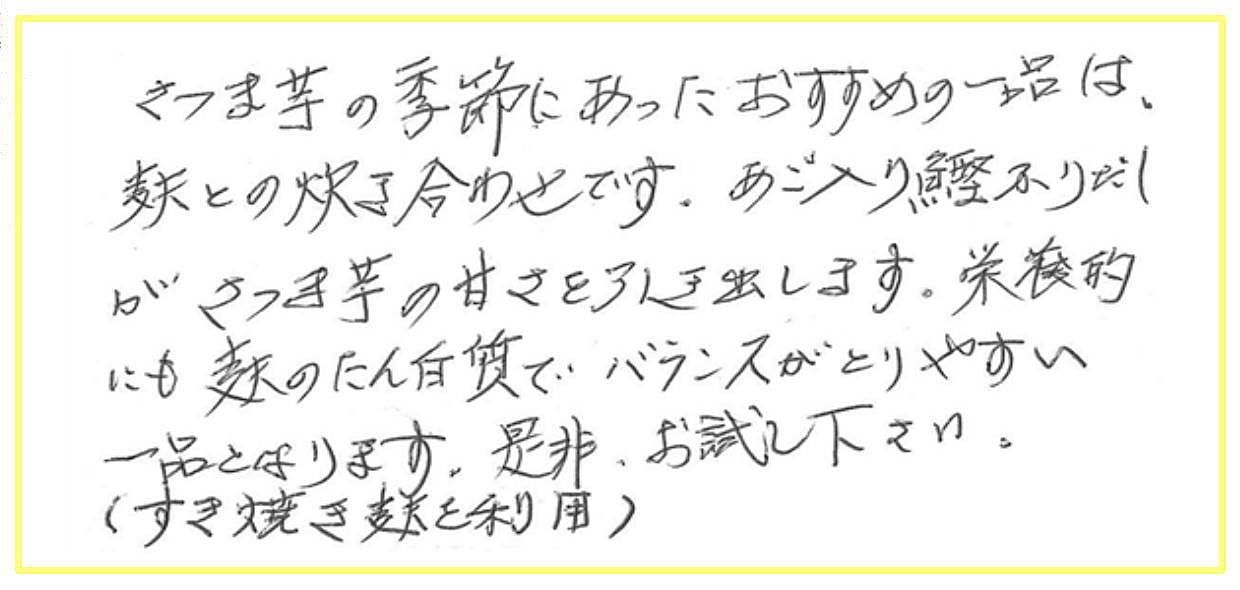 さつま芋の季節にあったおすすめの一品は、
麸との炊き合わせです。あご入り鰹ふりだし
がさつま芋の甘さを引き出します。栄養的
にも麸のたん白質でバランスがとりやすい
一品となります。是非、お試し下さい。
(すき焼き麸を利用)